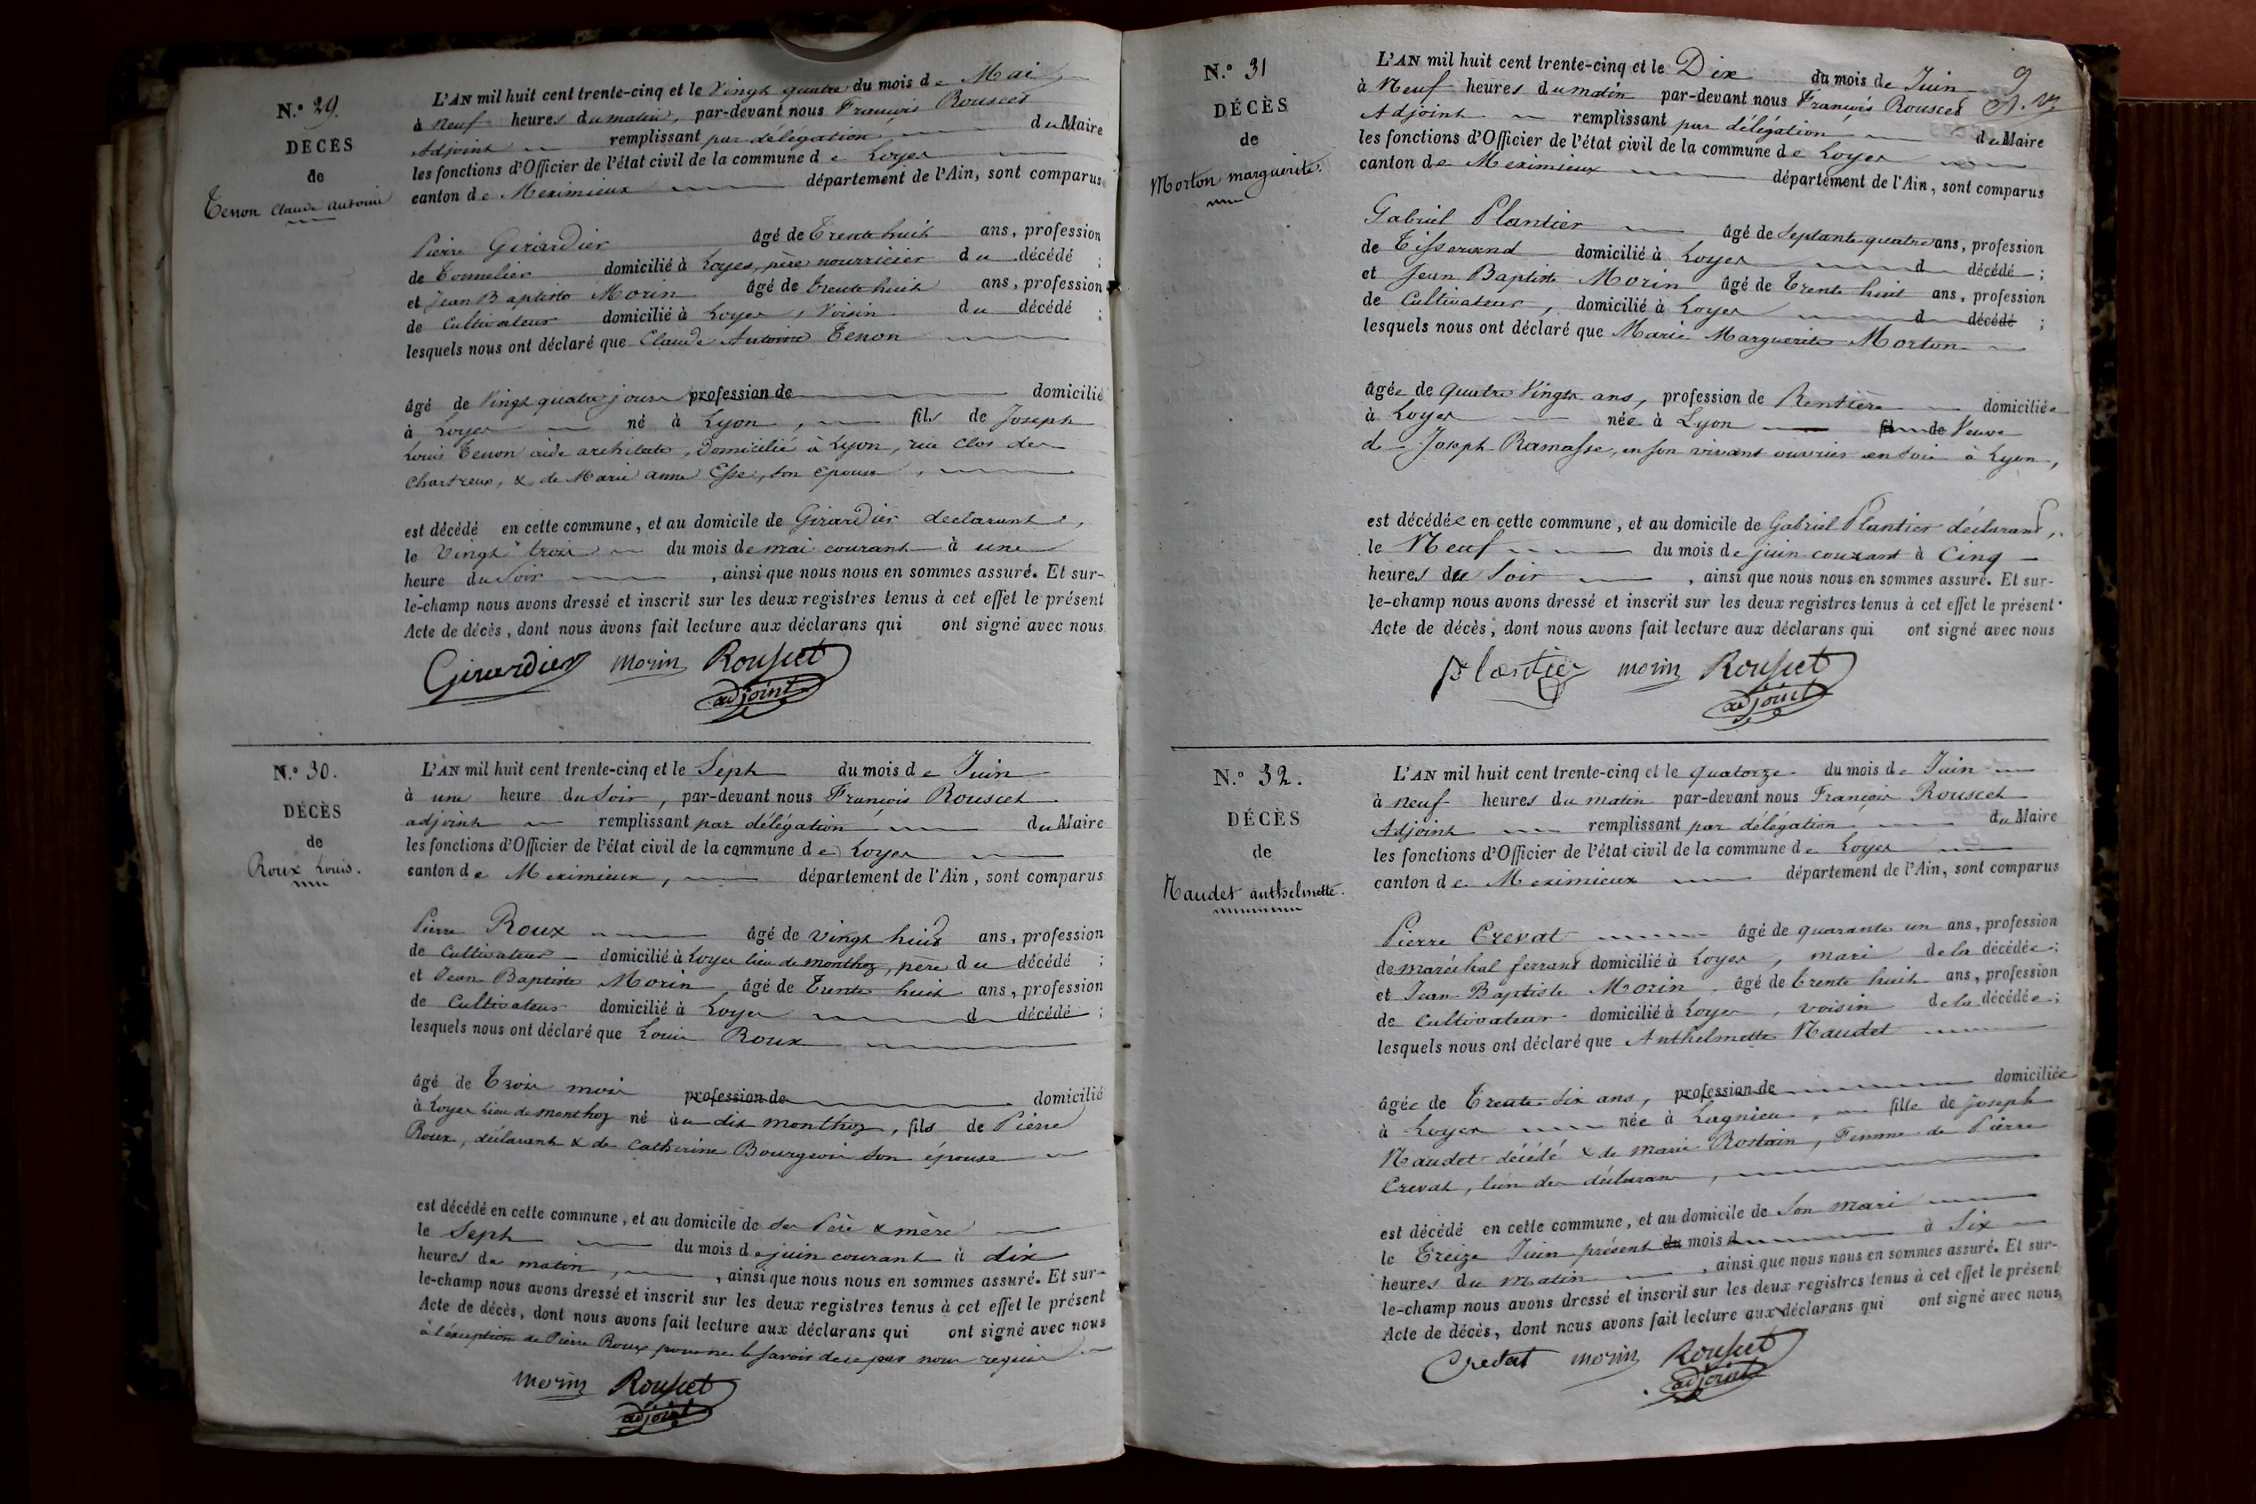 N.° 29.
DÉCÈS
de
Tenon Claude Antoine
L'AN mil huit cent trente-cinq et le Vingt quatre du mois de Mai
à Neuf heures du matin, par-devant nous François Rousset
Adjoint remplissant par délégation du Maire
les fonctions d'Officier de l'état civil de la commune de Loyes
canton de Meximieux département de l'Ain, sont comparus
Pierre Girardier âgé de Trente huit ans, profession
de Tonnelier domicilié à Loyes, père nourricier du décédé ;
et Jean Baptiste Morin âgé de trente huit ans, profession
de Cultivateur domicilié à Loyes, Voisin du décédé ;
lesquels nous ont déclaré que Claude Antoine Tenon
âgé de Vingt quatre jours profession de domicilié
à Loyes né à Lyon, fils de Joseph
Louis Tenon aide architecte, Domicilié à Lyon, rue Clos des
Chartreux, & de Marie anne Esse, son Epouse,
est décédé en cette commune, et au domicile de Girardier déclarant,
le Vingt trois du mois de mai courant à une
heure du Soir, ainsi que nous nous en sommes assuré. Et sur-
le-champ nous avons dressé et inscrit sur les deux registres tenus à cet effet le présent
Acte de décès, dont nous avons fait lecture aux déclarans qui ont signé avec nous
Girardier morin Rousset
adjoint
N.° 30.
DÉCÈS
de
Roux Louis.
L'AN mil huit cent trente-cinq et le Sept du mois de Juin
à une heure du Soir, par-devant nous François Rousset
adjoint remplissant par délégation du Maire
les fonctions d'Officier de l'état civil de la commune de Loyes
canton de Meximieux, département de l'Ain, sont comparus
Pierre Roux âgé de Vingt huit ans, profession
de Cultivateur domicilié à Loyes lieu de monthoz, père du décédé ;
et Jean Baptiste Morin âgé de Trente huit ans, profession
de Cultivateur domicilié à Loyes d décédé ;
lesquels nous ont déclaré que Louis Roux
âgé de Trois mois profession de domicilié
à Loyes lieu de monthoz né au dit monthoz, fils de Pierre
Roux, déclarant & de Catherine Bourgeois son épouse
est décédé en cette commune, et au domicile de ses Père & mère
le Sept du mois de juin courant à dix
heures du matin, , ainsi que nous nous en sommes assuré. Et sur-
le-champ nous avons dressé et inscrit sur les deux registres tenus à cet effet le présent
Acte de décès, dont nous avons fait lecture aux déclarans qui ont signé avec nous
à l'exception de Pierre Roux pour ne le savoir de ce par nous requis
morin Rousset
adjoint
N.° 31
DÉCÈS
de
Morton marguerite.
9
L'AN mil huit cent trente-cinq et le Dix du mois de Juin
à Neuf heures du matin par-devant nous François Rousset
Adjoint remplissant par délégation du Maire
les fonctions d'Officier de l'état civil de la commune de Loyes
canton de Meximieux département de l'Ain, sont comparus
Gabriel Plantier âgé de Septante quatre ans, profession
de Tisserand domicilié à Loyes d décédé ;
et Jean Baptiste Morin âgé de Trente huit ans, profession
de Cultivateur, domicilié à Loyes d décédé ;
lesquels nous ont déclaré que Marie Marguerite Morton
âgée de quatre Vingts ans, profession de Rentière domiciliée
à Loyes née à Lyon fil de Veuve
d Joseph Ramasse, en son vivant ouvrier en Soie à Lyon,
est décédée en cette commune, et au domicile de Gabriel Plantier déclarant,
le Neuf du mois de juin courant à Cinq
heures du Soir, ainsi que nous nous en sommes assuré. Et sur-
le-champ nous avons dressé et inscrit sur les deux registres tenus à cet effet le présent
Acte de décès, dont nous avons fait lecture aux déclarans qui ont signé avec nous
Plantier morin Rousset
adjoint
N.° 32.
DÉCÈS
de
Naudet anthelmette.
L'AN mil huit cent trente-cinq et le quatorze du mois de Juin
à neuf heures du matin par-devant nous François Rousset
Adjoint remplissant par délégation du Maire
les fonctions d'Officier de l'état civil de la commune de Loyes
canton de Meximieux département de l'Ain, sont comparus
Pierre Crevat âgé de quarante un ans, profession
de maréchal ferrant domicilié à Loyes, mari de la décédée ;
et Jean Baptiste Morin. âgé de trente huit ans, profession
de Cultivateur domicilié à Loyes, voisin de la décédée ;
lesquels nous ont déclaré que Anthelmette Naudet
âgée de Trente Six ans, profession de domiciliée
à Loyes née à Lagnieu, fille de Joseph
Naudet décédé & de marie Rostain, Femme de Pierre
Crevat, l'un des déclarans,
est décédé en cette commune, et au domicile de Son mari
le Treize Juin présent du mois d à Six
heures du Matin, ainsi que nous nous en sommes assuré. Et sur-
le-champ nous avons dressé et inscrit sur les deux registres tenus à cet effet le présent
Acte de décès, dont nous avons fait lecture aux déclarans qui ont signé avec nous
Crevat morin Rousset
adjoint